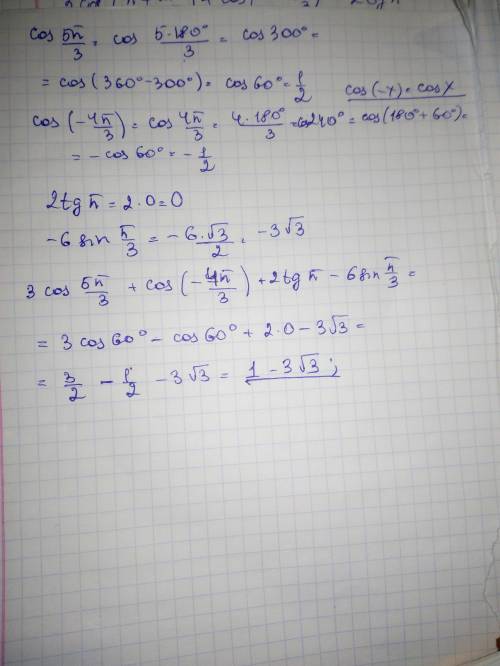 cos 5π/3 = cos 5·180°/3 = cos 300° =
= cos(360°-300°) = cos 60° = 1/2 cos(-x) = cos x
cos(-4π/3) = cos 4π/3 = 4·180°/3 = cos 240° = cos(180°+60°) =
= -cos 60° = -1/2
2tg π = 2·0 = 0
-6 sin π/3 = -6·√3/2 = -3√3
3 cos 5π/3 + cos(-4π/3) + 2tg π - 6 sin π/3 =
= 3 cos 60° - cos 60° + 2·0 - 3√3 =
= 3/2 - 1/2 - 3√3 = 1 - 3√3 ;